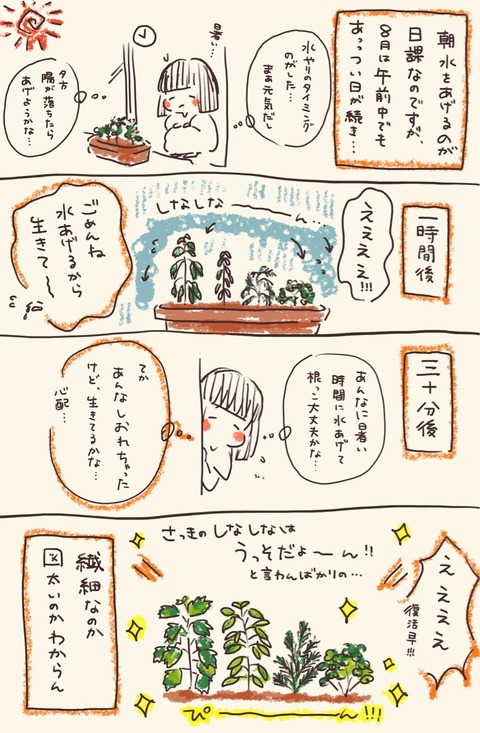 朝水をあげるのが
日課なのですが、
8月は午前中でも
あっつい日が続き…
水やりのタイミング
のがした…
まあ元気だし
暑い…
夕方
陽が落ちたら
あげようかな…
一時間後
ええええ!!!
しなしな〜〜ん…
ごめんね
水あげるから
生きて〜
三十分後
あんなに暑い
時間に水あげて
根っこ大丈夫かな…
てか
あんなしおれちゃった
けど、生きてるかな…
心配…
ええええ
復活早!!!
さっきのしなしなは
うっそだよ〜ん!!
と言わんばかりの…
ぴーーーーん!!!
繊細なのか
図太いのかわからん